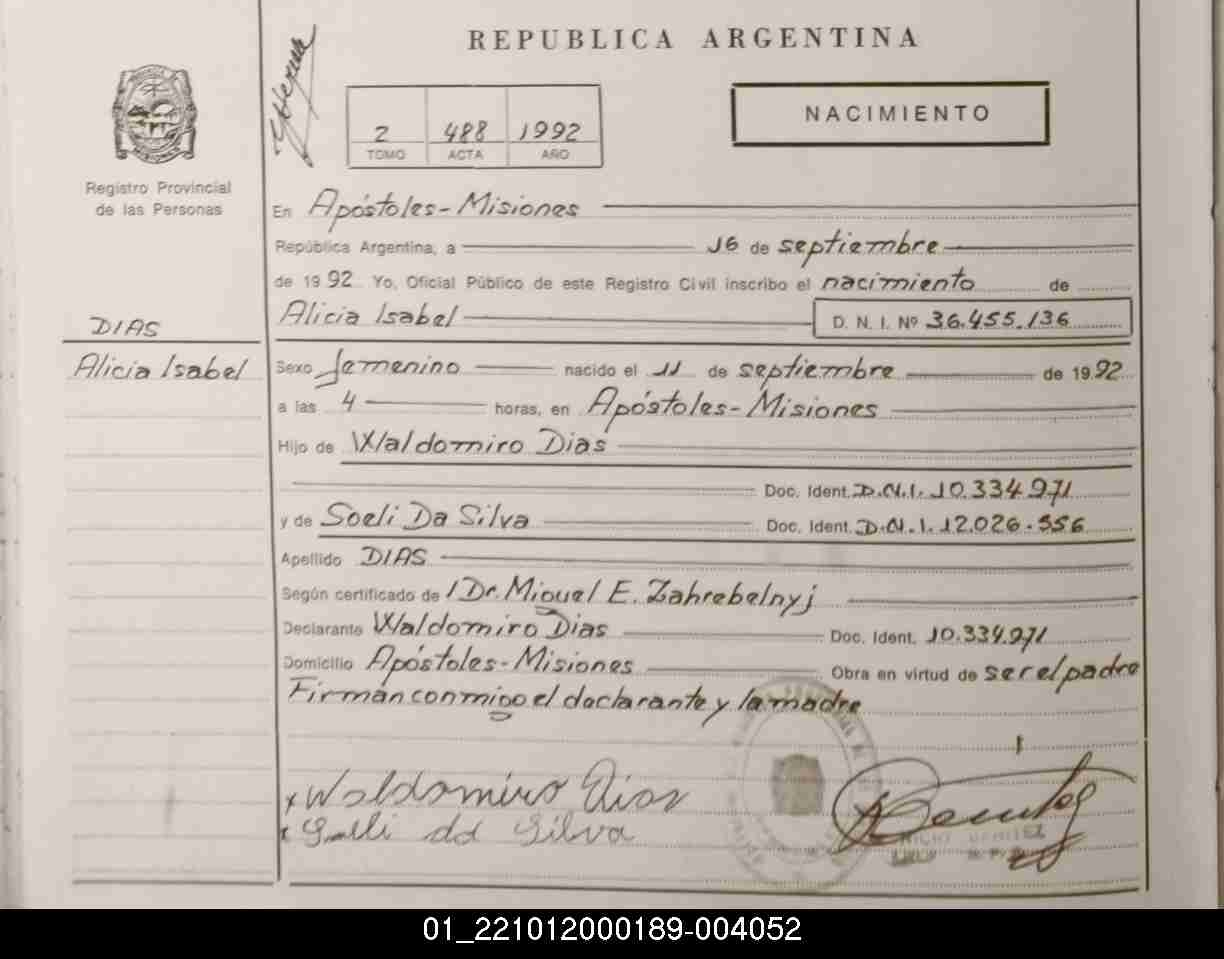 REPUBLICA ARGENTINA
NACIMIENTO
2 488 1992
TOMO ACTA AÑO
Registro Provincial
de las Personas
DIAS
Alicia Isabel
En Apóstoles-Misiones
República Argentina, a 16 de septiembre
de 1992 Yo, Oficial Público de este Registro Civil inscribo el nacimiento de
Alicia Isabel D. N. I. Nº 36.455.136
Sexo femenino nacido el 11 de septiembre de 1992
a las 4 horas, en Apóstoles-Misiones
Hijo de Waldomiro Dias
Doc. Ident. D.N.I. 10.334.971
y de Soeli Da Silva Doc. Ident. D.N.I. 12.026.556
Apellido DIAS
Según certificado de Dr. Miguel E. Zahrebelnyj
Declarante Waldomiro Dias Doc. Ident. 10.334.971
Domicilio Apóstoles-Misiones Obra en virtud de ser el padre
Firman conmigo el declarante y la madre
x Waldomiro Dias
x Soeli da Silva
01_221012000189-004052